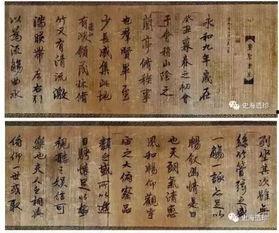 永和九年歲在
癸丑暮春之初會
于會稽山陰之
蘭亭脩稧事
也羣賢畢至
少長咸集此地
有峻領茂林脩
竹又有清流激
湍暎帶左右引
以為流觴曲水
列坐其次雖無
絲竹管弦之盛
一觴一詠亦足以
暢敘幽情是日
也天朗氣清惠
風和暢仰觀宇
宙之大俯察品
類之盛所以遊
目騁懷足以極
視聽之娛信可
樂也夫人之相與
俯仰一世或取